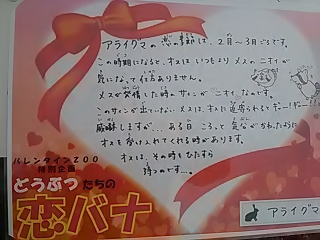 アライグマの恋の季節は、2月～3月ごろです。
この時期になると、オスはいつもより メスの ニオイが
気になって仕方ありません。
メスが発情した時のサインが "ニオイ"なのです。
このサインが出ていない メスは、オスに近寄られるとギーギー!!と
しますが… ある日 ころっと 気分が かわったように
オスを受け入れてくれる時があります。
オスは、その時を ひたすら
待つのです…。
バレンタインZOO
特別企画
どうぶつたちの
恋バナ
アライグマ